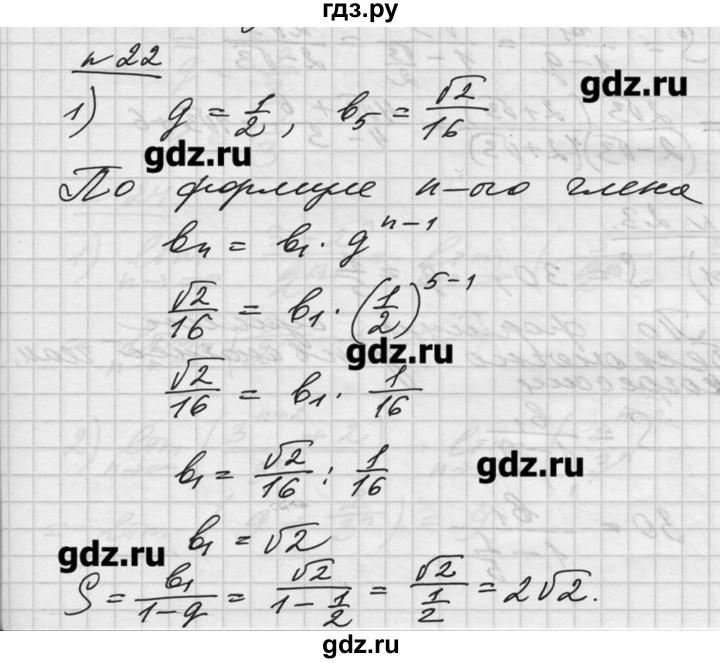 гдз.ру
n 22
1) q = 1/2, b₅ = √2/16
gdz.ru
gdz.ru
По формуле n-ого члена
bₙ = b₁ · q^(n-1)
√2/16 = b₁ · (1/2)^(5-1)
gdz.ru
√2/16 = b₁ · 1/16
b₁ = √2/16 : 1/16
gdz.ru
b₁ = √2
gdz.ru
S = b₁/(1-q) = √2/(1-1/2) = √2/(1/2) = 2√2.
gdz.ru